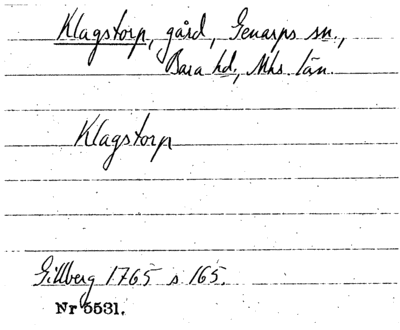 Klagstorp, gård, Genarps sn.,
Bara hd., Mhs. län.
Klagstorp
Gillberg 1765 s 165.
Nr 5531.